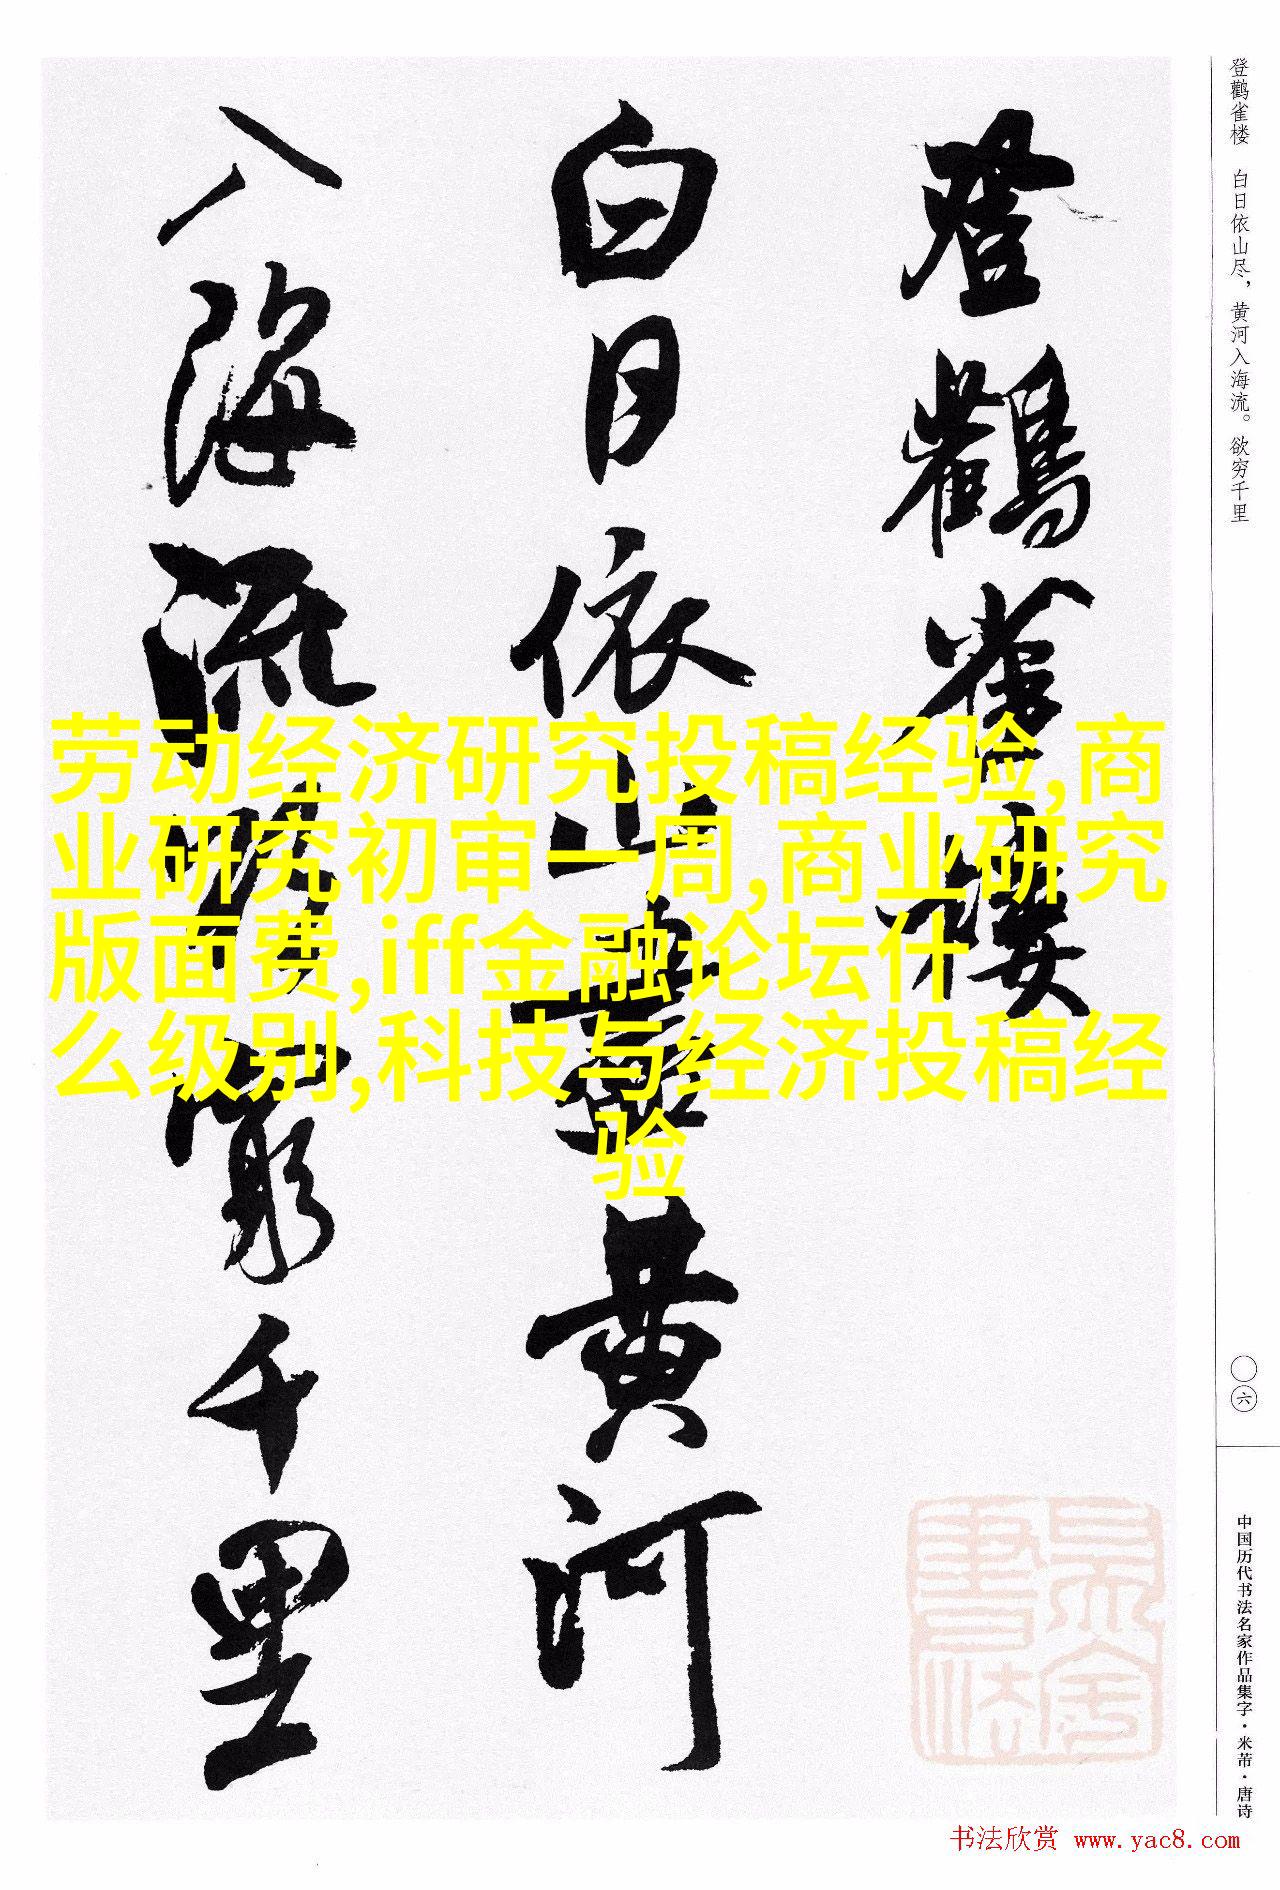 登鹳雀楼 白日依山尽，黄河入海流。欲穷千里
登鸛雀樓
白日依山盡黄河
入海流欲窮千里
劳动经济研究投稿经验,商
业研究初审一周,商业研究
版面费,iff金融论坛什
么级别,科技与经济投稿经
验
〇六
中国历代书法名家作品集字·米芾·唐诗
书法欣赏 www.yac8.com